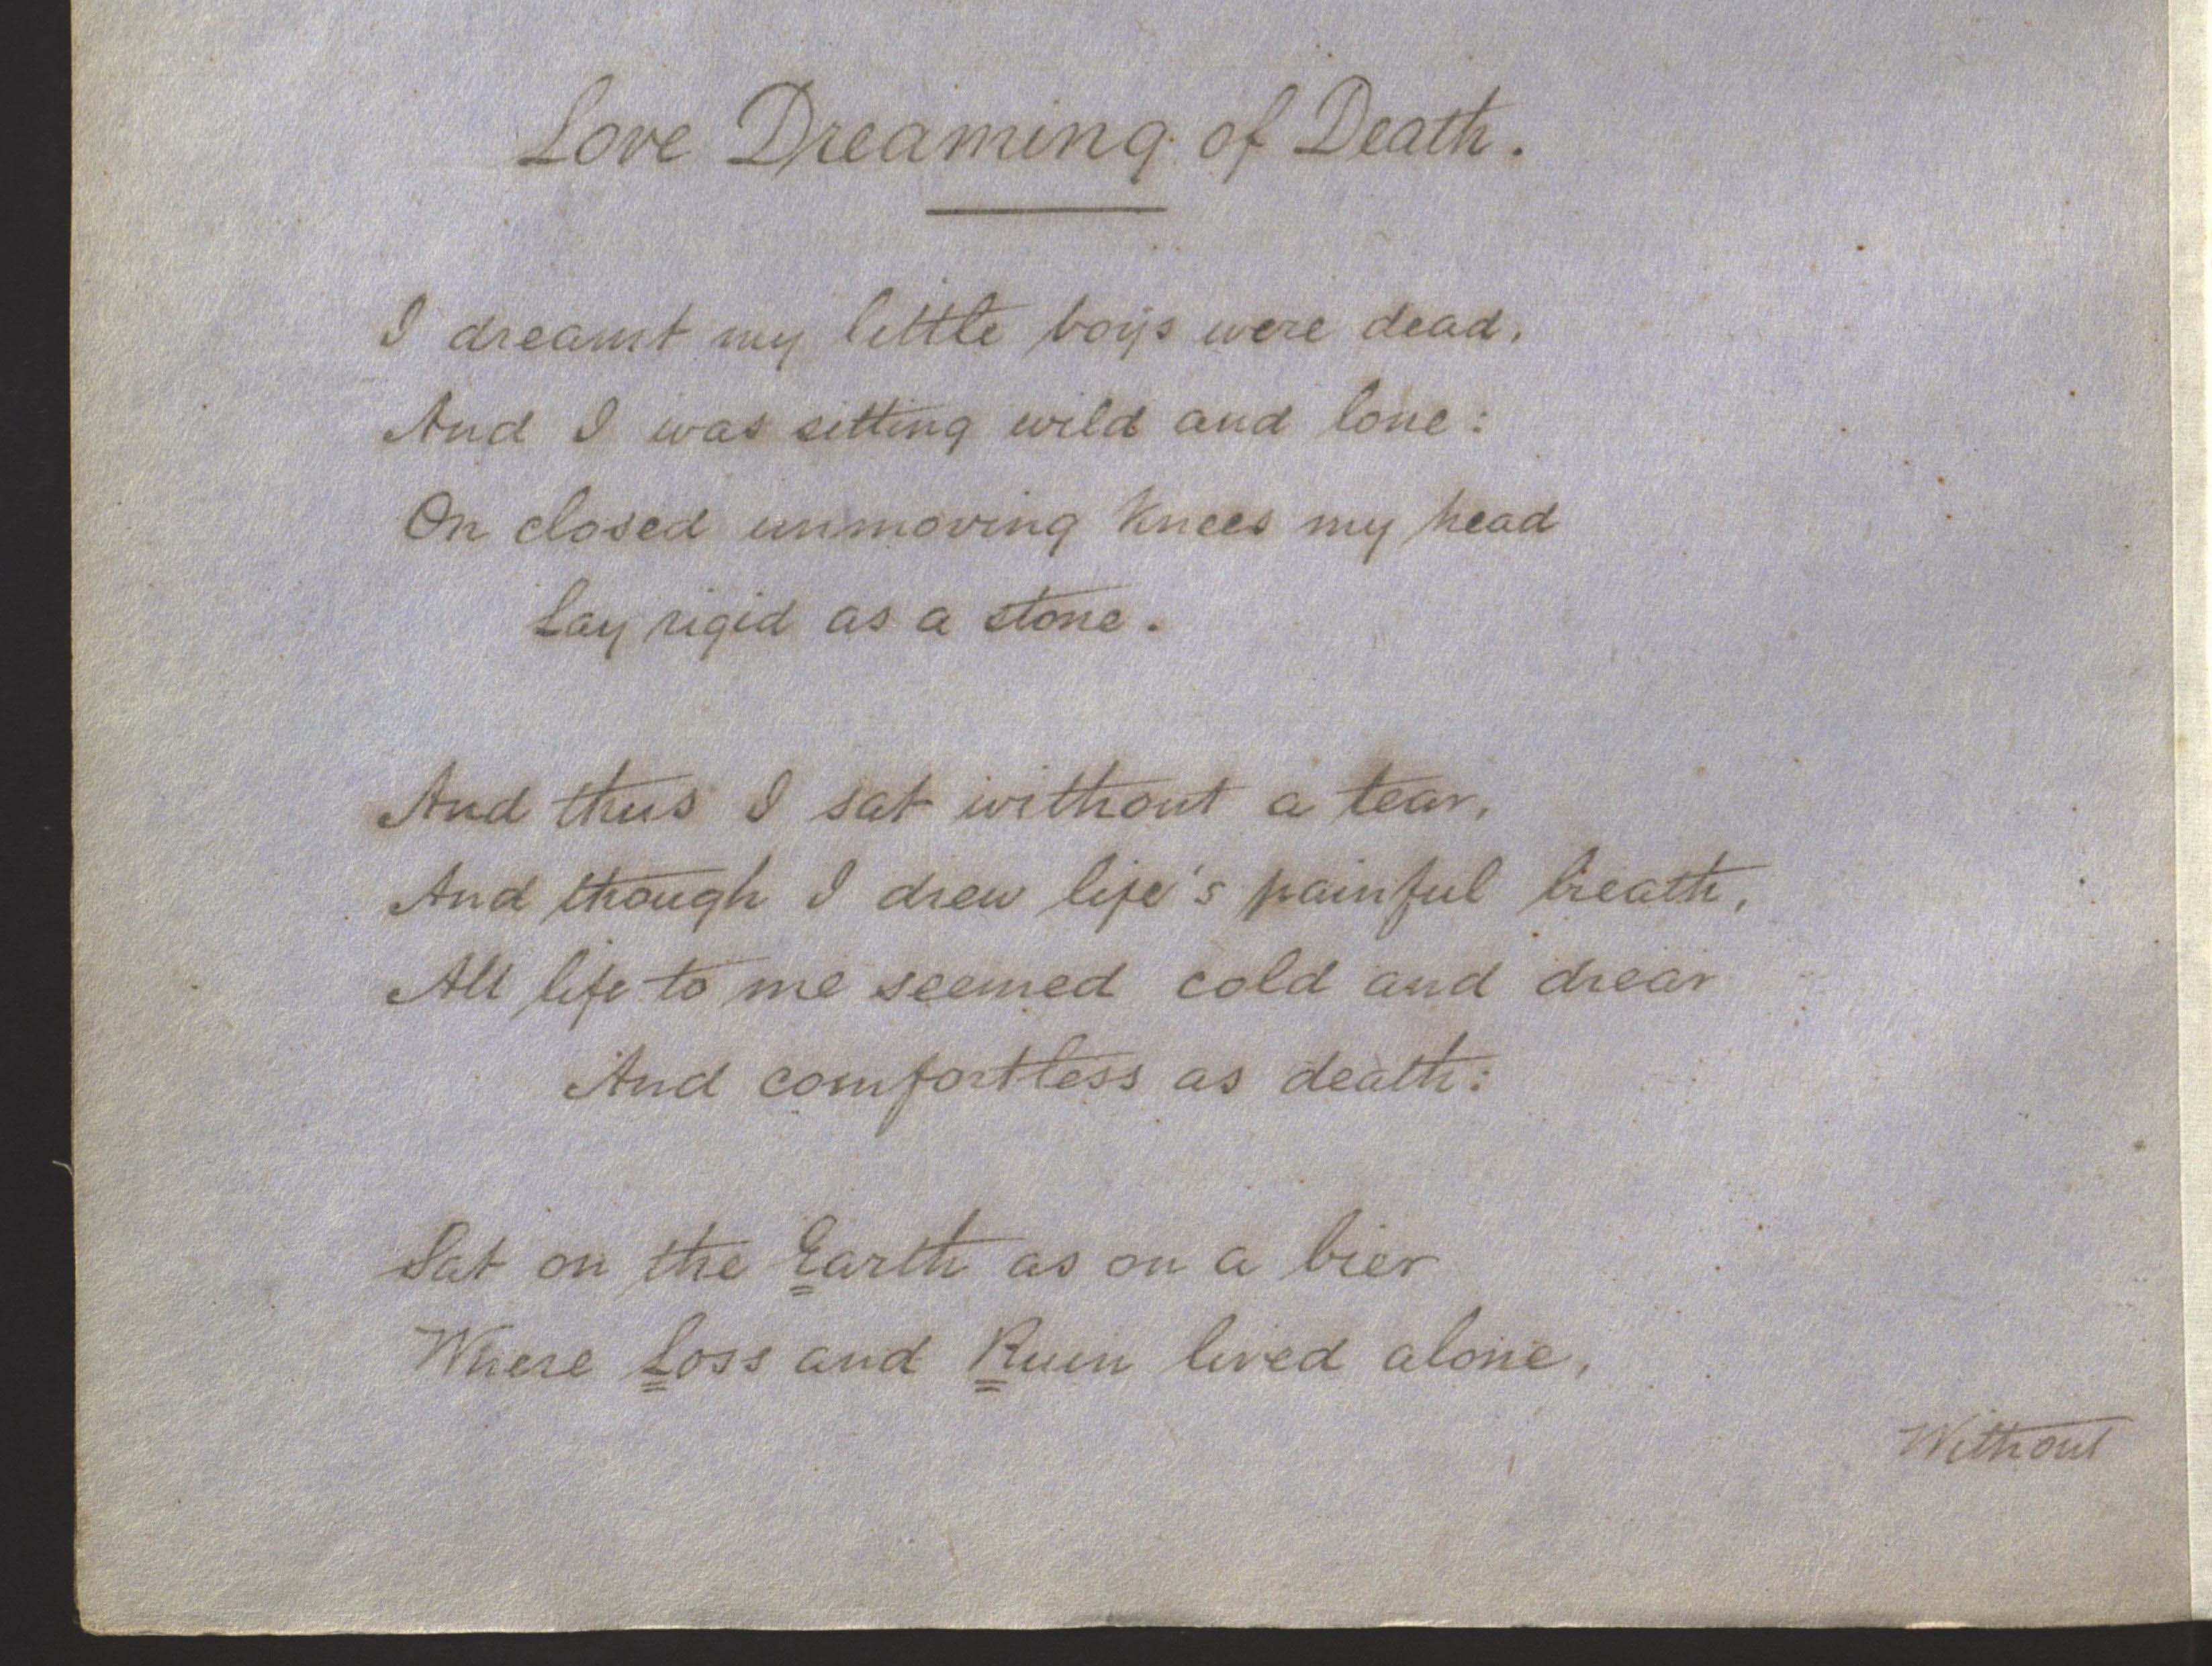 Love Dreaming of Death.
I dreamt my little boys were dead,
And I was sitting wild and lone:
On closed unmoving knees my head
Lay rigid as a stone.
And thus I sat without a tear,
And though I drew life's painful breath,
All life to me seemed cold and drear
And comfortless as death:
Sat on the Earth as on a bier
Where Loss and Ruin lived alone,
Without